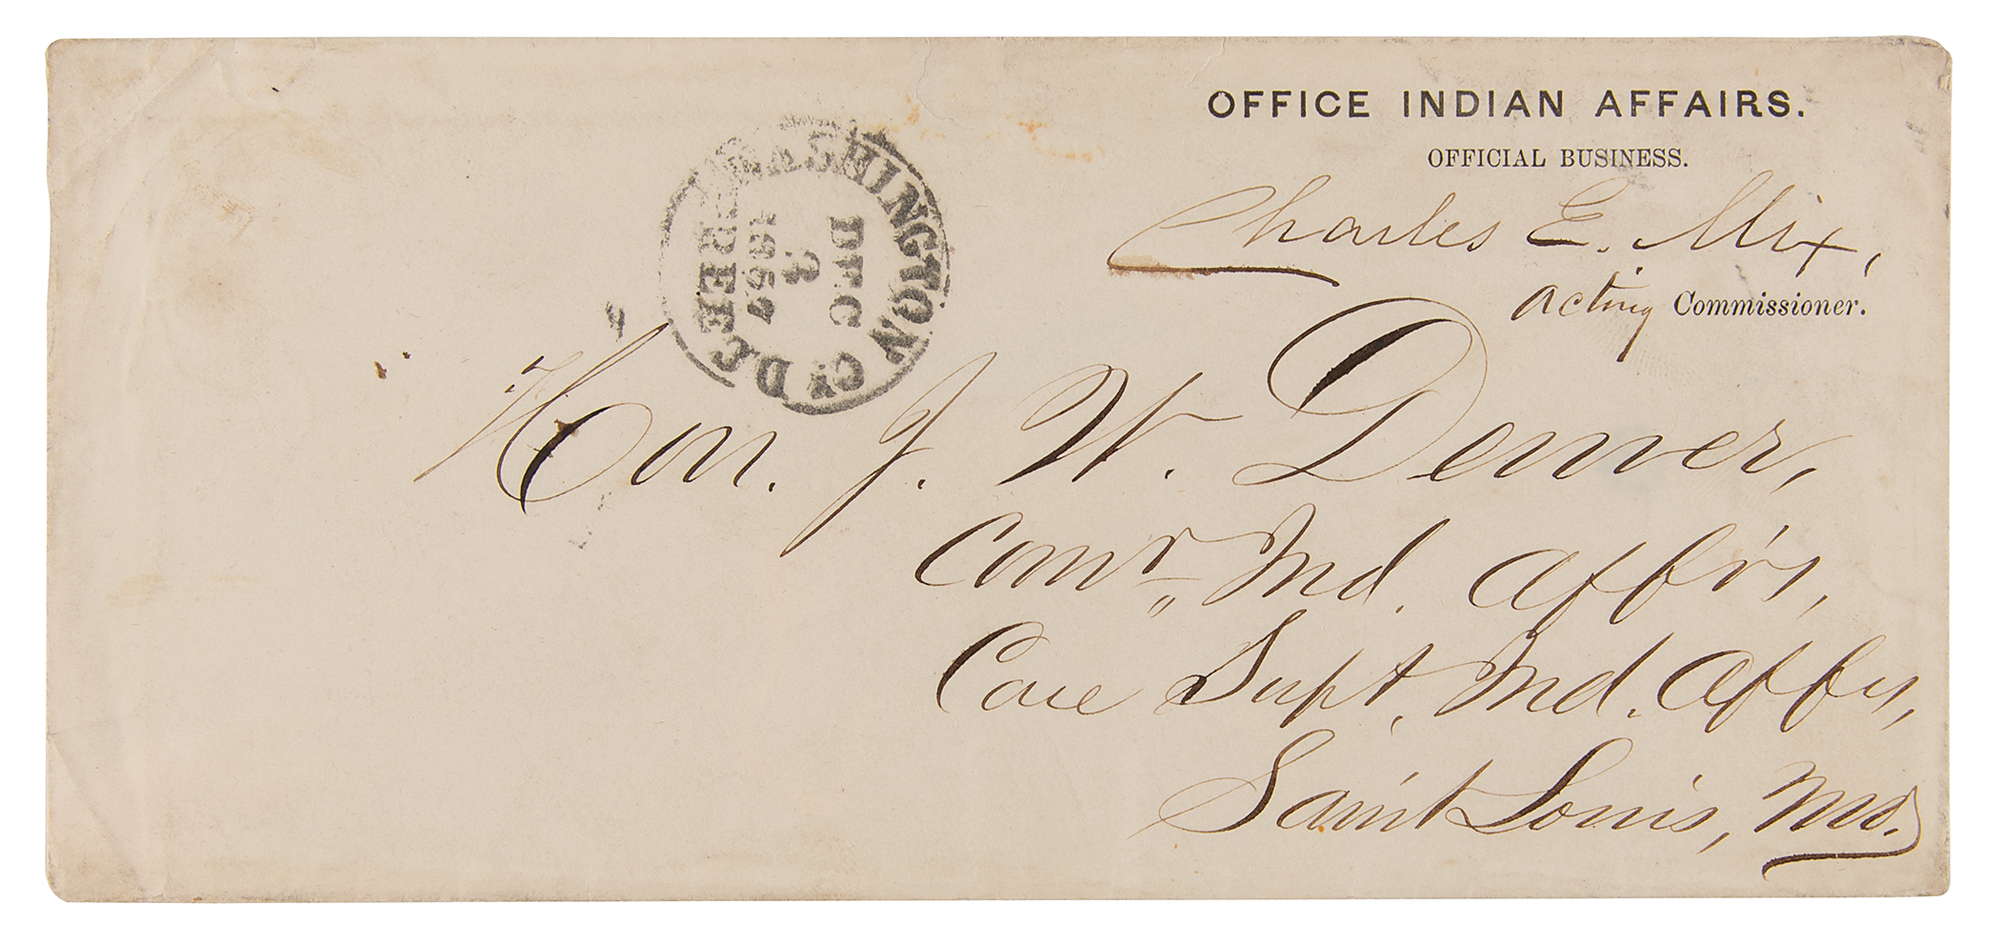 OFFICE INDIAN AFFAIRS.
OFFICIAL BUSINESS.
Charles E. Mix,
Acting Commissioner.
WASHINGTON CY D.C.
DEC
1857
FREE
Hon. J. W. Denver,
Comr. Ind. Affrs,
Care Supt. Ind. Affrs,
Saint Louis, Mo.